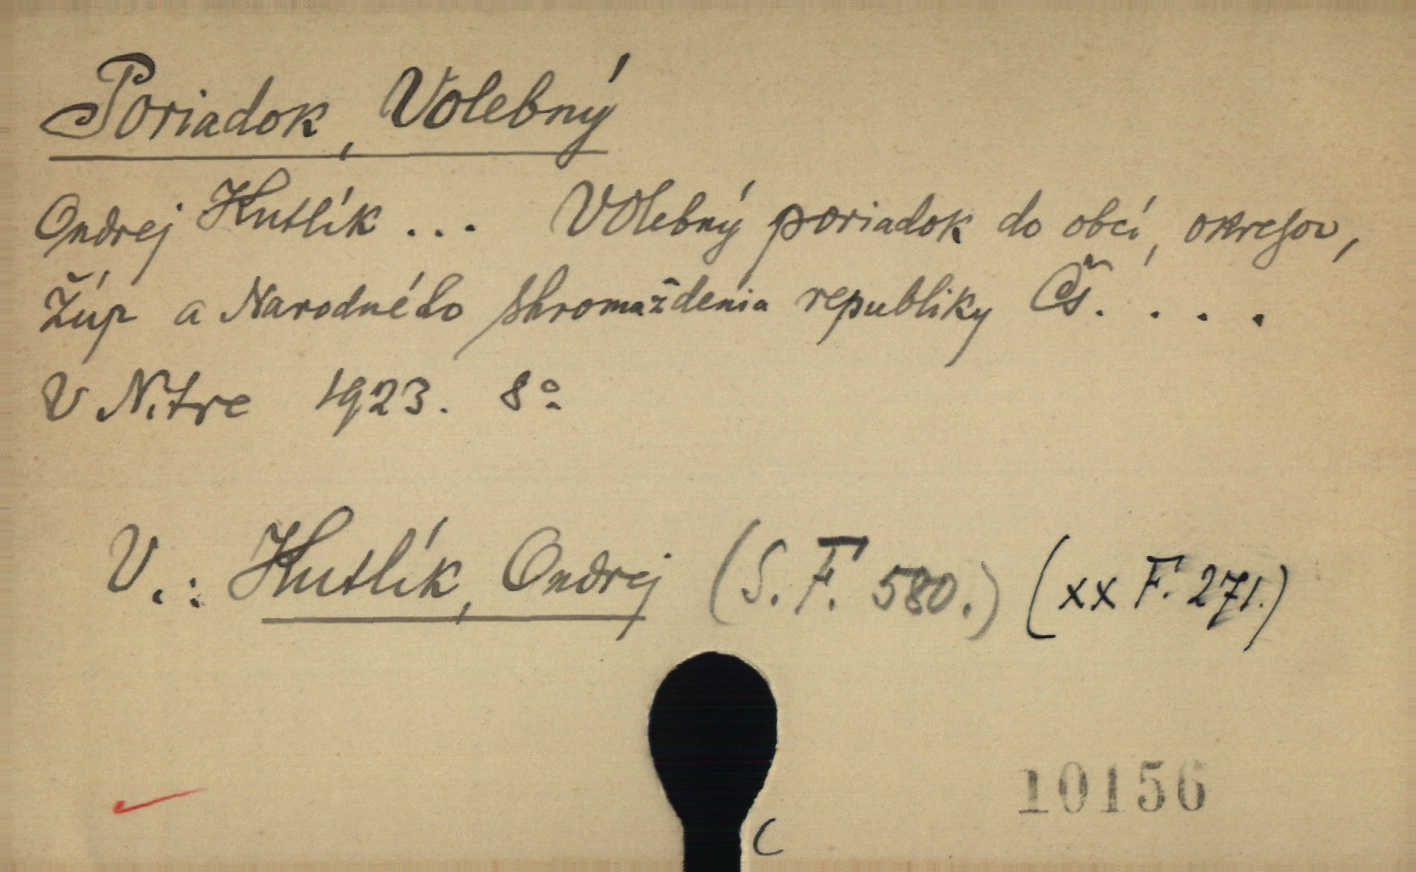 Poriadok, Volebný
Ondrej Hutlík ... Volebný poriadok do obcí, okresov,
Žúp a Narodného shromaždenia republiky Čs. . . .
V Nitre 1923. 8°
V.: Hutlík, Ondrej (S. F. 580.) (xx F. 271.)
10156
C